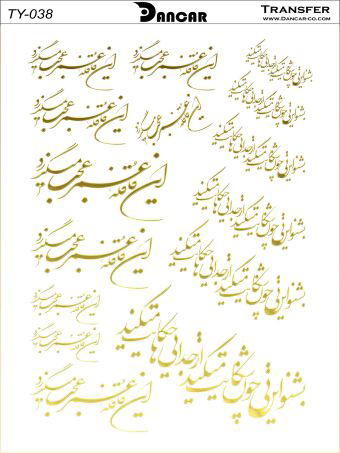 TY-038
DANCAR
TRANSFER
WWW.DANCAR-CO.COM
این قافله عمر عجب میگذرد
این قافله عمر عجب میگذرد
بشنو این نی چون شکایت میکند
از جداییها حکایت میکند
این قافله عمر عجب میگذرد
بشنو این نی چون شکایت میکند
از جداییها حکایت میکند
این قافله عمر عجب میگذرد
بشنو این نی چون شکایت میکند
از جداییها حکایت میکند
این قافله عمر عجب میگذرد
بشنو این نی چون شکایت میکند
از جداییها حکایت میکند
این قافله عمر عجب میگذرد
بشنو این نی چون شکایت میکند
از جداییها حکایت میکند
این قافله عمر عجب میگذرد
این قافله عمر عجب میگذرد
بشنو این نی چون شکایت میکند
از جداییها حکایت میکند